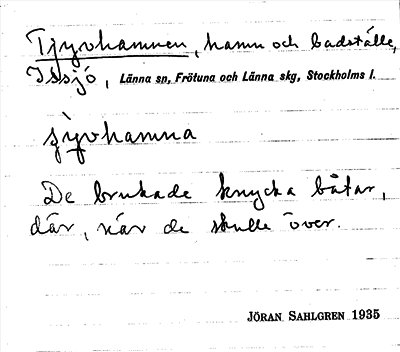 Tjyvhamnen, hamn och badställe,
Issjö, Länna sn, Frötuna och Länna skg, Stockholms l.
jy̆vhamna
De brukade knycka båtar,
där, när de skulle över.
JÖRAN SAHLGREN 1935